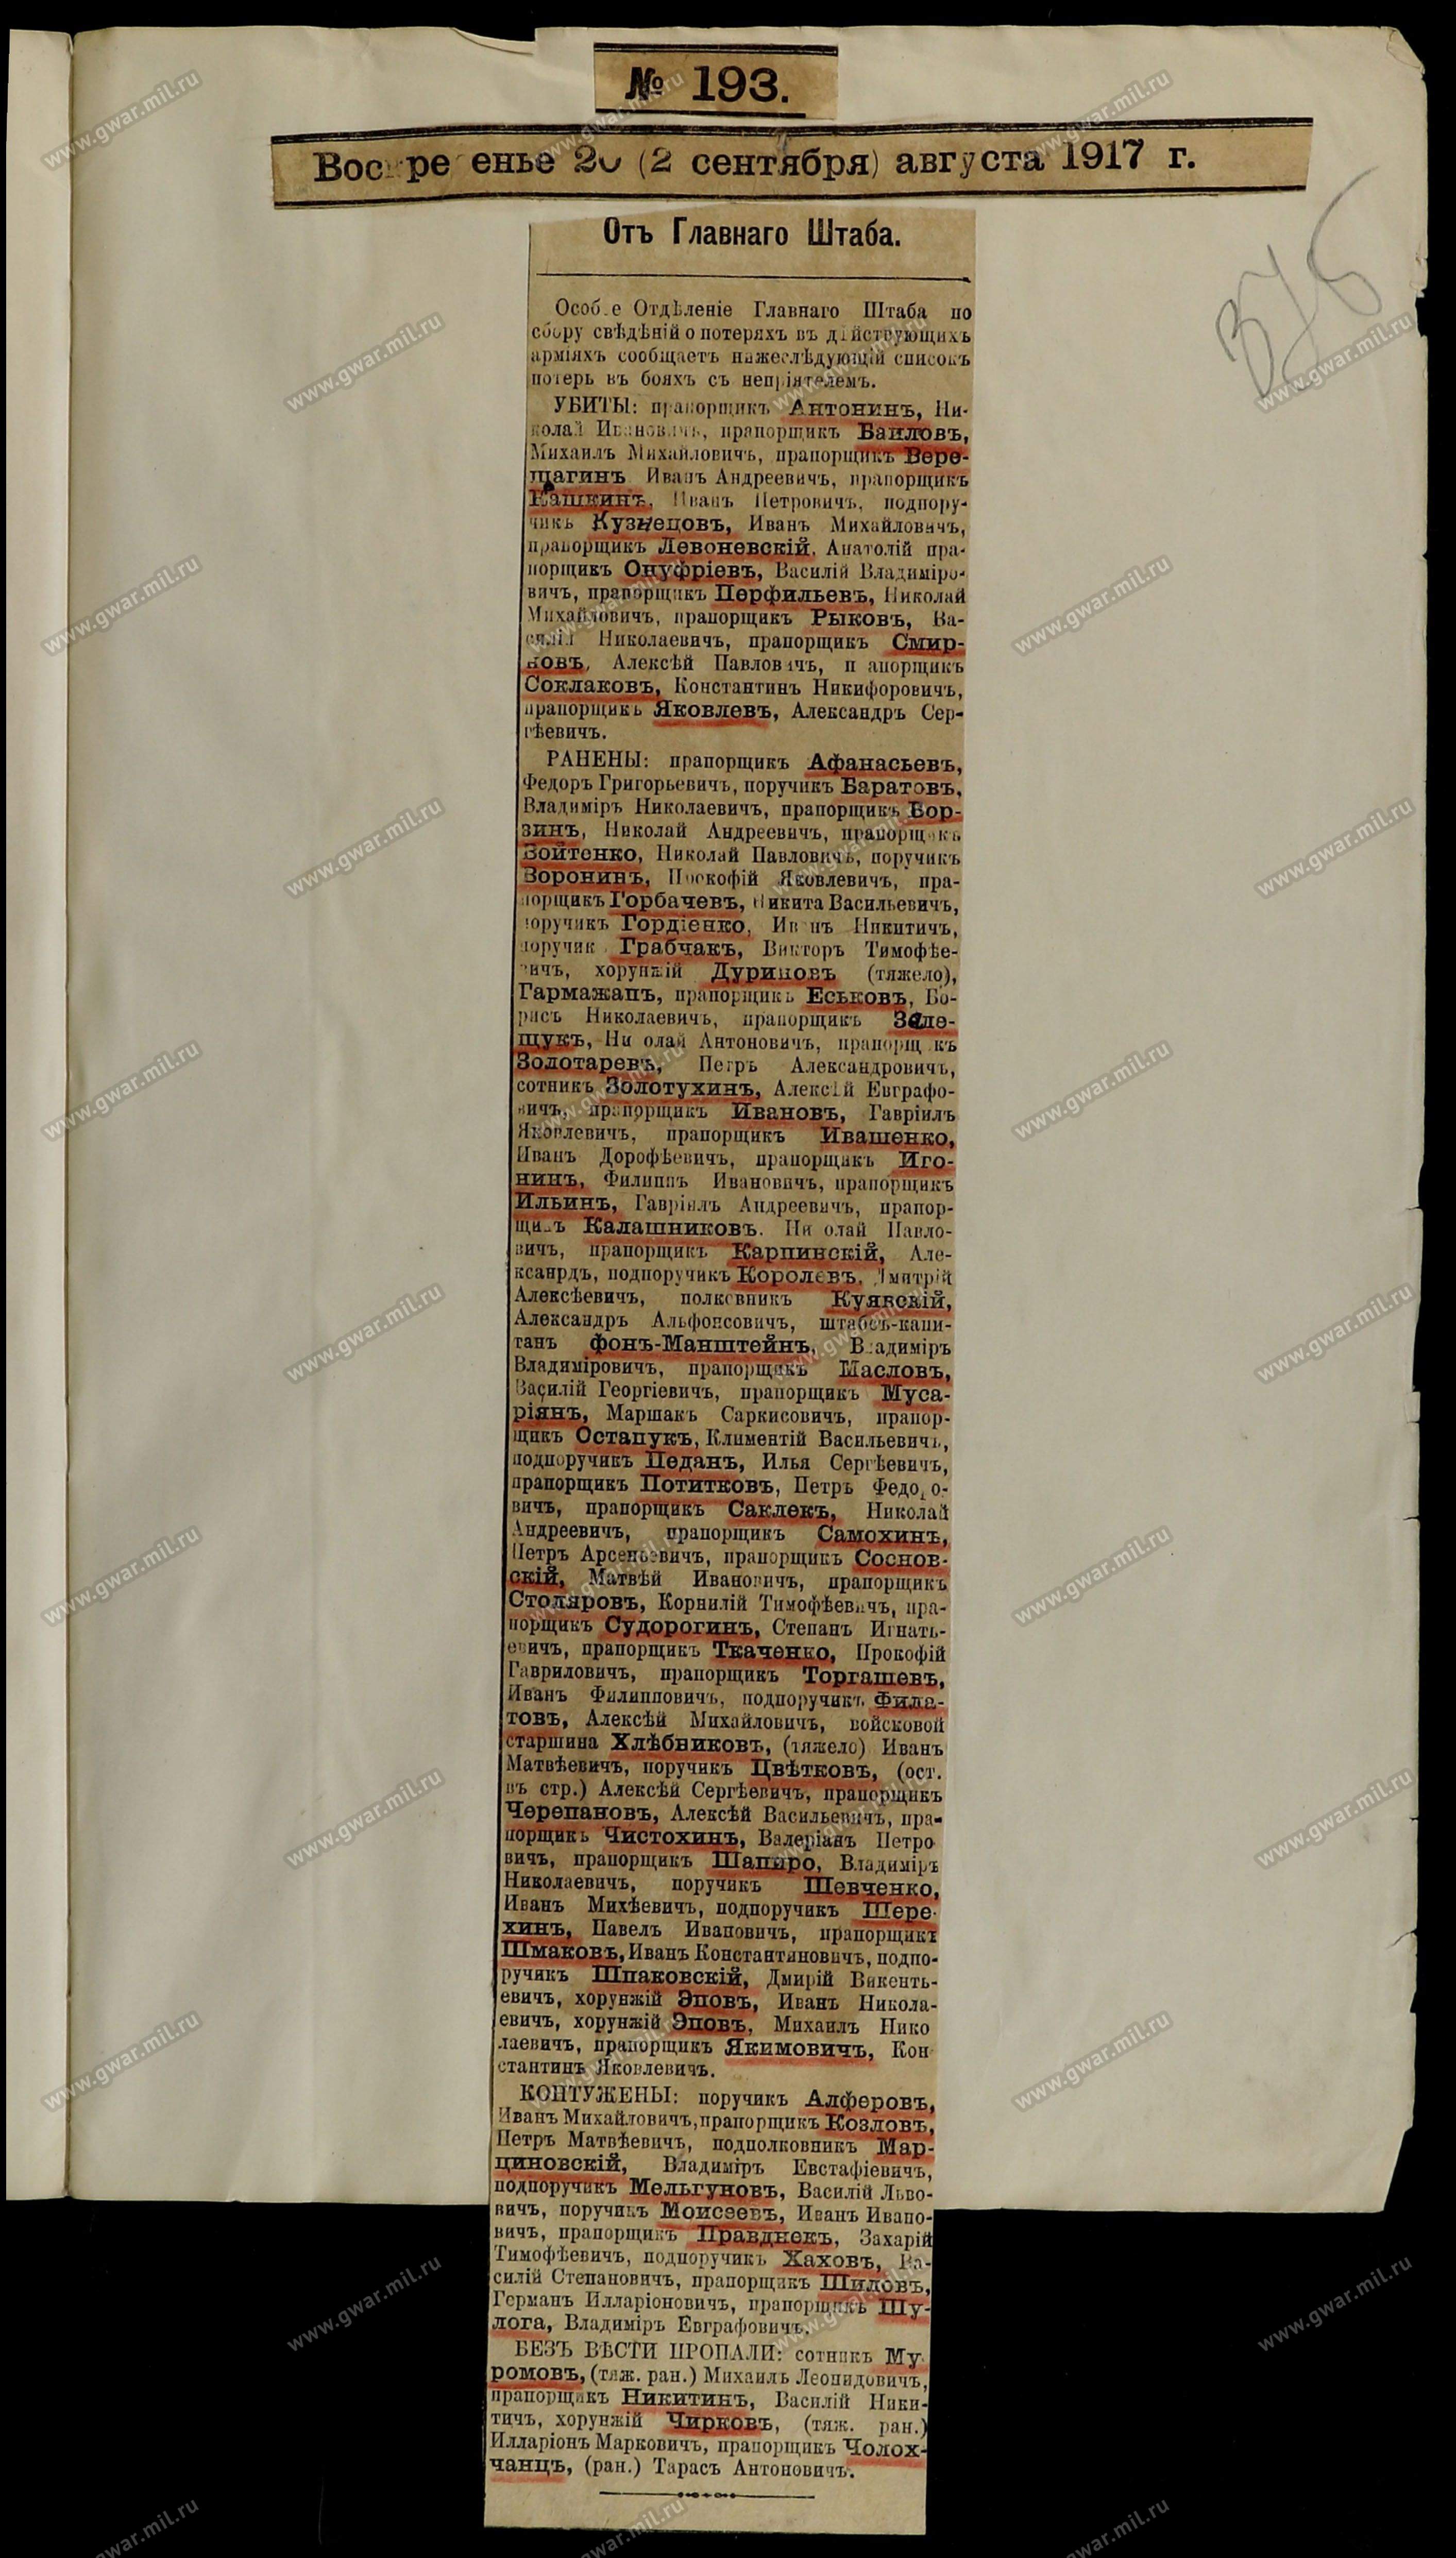 № 193.
Воскресенье 20 (2 сентября) августа 1917 г.
376
Отъ Главнаго Штаба.
Особое Отдѣленіе Главнаго Штаба по
сбору свѣдѣній о потеряхъ въ дѣйствующихъ
арміяхъ сообщаетъ нижеслѣдующій списокъ
потерь въ бояхъ съ непріятелемъ.
УБИТЫ: прапорщикъ Антонинъ, Ни-
колай Ивановичъ, прапорщикъ Баиловъ,
Михаилъ Михайловичъ, прапорщикъ Вере-
щагинъ Иванъ Андреевичъ, прапорщикъ
Кашкинъ, Иванъ Петровичъ, подпору-
чикъ Кузнецовъ, Иванъ Михайловичъ,
прапорщикъ Левоневскій, Анатолій пра-
порщикъ Онуфріевъ, Василій Владиміро-
вичъ, прапорщикъ Перфильевъ, Николай
Михайловичъ, прапорщикъ Рыковъ, Ва-
силій Николаевичъ, прапорщикъ Смир-
новъ, Алексѣй Павловичъ, прапорщикъ
Соклаковъ, Константинъ Никифоровичъ,
прапорщикъ Яковлевъ, Александръ Сер-
гѣевичъ.
РАНЕНЫ: прапорщикъ Афанасьевъ,
Федоръ Григорьевичъ, поручикъ Баратовъ,
Владиміръ Николаевичъ, прапорщикъ Бор-
зинъ, Николай Андреевичъ, прапорщикъ
Войтенко, Николай Павловичъ, поручикъ
Воронинъ, Прокофій Яковлевичъ, пра-
порщикъ Горбачевъ, Никита Васильевичъ,
поручикъ Гордіенко, Иванъ Никитичъ,
поручик Грабчакъ, Викторъ Тимофѣе-
вичъ, хорунжій Дуриновъ (тяжело),
Гармажапъ, прапорщикъ Еськовъ, Бо-
рисъ Николаевичъ, прапорщикъ Зеле-
щукъ, Николай Антоновичъ, прапорщикъ
Золотаревъ, Петръ Александровичъ,
сотникъ Золотухинъ, Алексѣй Евграфо-
вичъ, прапорщикъ Ивановъ, Гавріилъ
Яковлевичъ, прапорщикъ Ивашенко,
Иванъ Дорофѣевичъ, прапорщикъ Иго-
нинъ, Филиппъ Ивановичъ, прапорщикъ
Ильинъ, Гавріилъ Андреевичъ, прапор-
щикъ Калашниковъ. Николай Павло-
вичъ, прапорщикъ Карпинскій, Але-
ксанрдъ, подпоручикъ Королевъ, Дмитрій
Алексѣевичъ, полковникъ Куявскій,
Александръ Альфонсовичъ, штабсъ-капи-
танъ фонъ-Манштейнъ, Владиміръ
Владиміровичъ, прапорщикъ Масловъ,
Василій Георгіевичъ, прапорщикъ Муса-
ріянъ, Маршакъ Саркисовичъ, прапор-
щикъ Остапукъ, Климентій Васильевичъ,
подпоручикъ Педанъ, Илья Сергѣевичъ,
прапорщикъ Потитковъ, Петръ Федоро-
вичъ, прапорщикъ Саклекъ, Николай
Андреевичъ, прапорщикъ Самохинъ,
Петръ Арсеньевичъ, прапорщикъ Соснов-
скій, Матвѣй Ивановичъ, прапорщикъ
Столяровъ, Корнилій Тимофѣевичъ, пра-
порщикъ Судорогинъ, Степанъ Игнать-
евичъ, прапорщикъ Ткаченко, Прокофій
Гавриловичъ, прапорщикъ Торгашевъ,
Иванъ Филипповичъ, подпоручикъ Фила-
товъ, Алексѣй Михайловичъ, войсковой
старшина Хлѣбниковъ, (тяжело) Иванъ
Матвѣевичъ, поручикъ Цвѣтковъ, (ост.
въ стр.) Алексѣй Сергѣевичъ, прапорщикъ
Черепановъ, Алексѣй Васильевичъ, пра-
порщикъ Чистохинъ, Валеріанъ Петро
вичъ, прапорщикъ Шапиро, Владиміръ
Николаевичъ, поручикъ Шевченко,
Иванъ Михѣевичъ, подпоручикъ Шере-
хинъ, Павелъ Ивановичъ, прапорщикъ
Шмаковъ, Иванъ Константиновичъ, подпо-
ручикъ Шпаковскій, Дмирій Викенть-
евичъ, хорунжій Эповъ, Иванъ Никола-
евичъ, хорунжій Эповъ, Михаилъ Нико
лаевичъ, прапорщикъ Якимовичъ, Кон
стантинъ Яковлевичъ.
КОНТУЖЕНЫ: поручикъ Алферовъ,
Иванъ Михайловичъ, прапорщикъ Козловъ,
Петръ Матвѣевичъ, подполковникъ Мар-
циновскій, Владиміръ Евстафіевичъ,
подпоручикъ Мельгуновъ, Василій Льво-
вичъ, поручикъ Моисеевъ, Иванъ Ивано-
вичъ, прапорщикъ Правднекъ, Захарій
Тимофѣевичъ, подпоручикъ Хаховъ, Ва-
силій Степановичъ, прапорщикъ Шиловъ,
Германъ Илларіоновичъ, прапорщикъ Шу-
лога, Владиміръ Евграфовичъ.
БЕЗЪ ВѢСТИ ПРОПАЛИ: сотникъ Му
ромовъ, (тяж. ран.) Михаилъ Леонидовичъ,
прапорщикъ Никитинъ, Василій Ники-
тичъ, хорунжій Чирковъ, (тяж. ран.)
Илларіонъ Марковичъ, прапорщикъ Чолох-
чанцъ, (ран.) Тарасъ Антоновичъ.